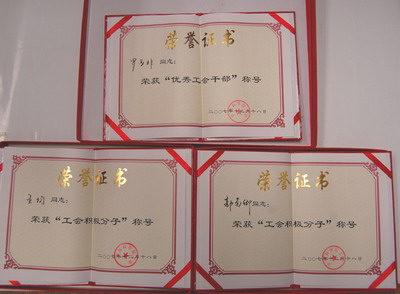 荣誉证书
同志：
荣获“优秀工会干部”称号
二○○七年十二月十八日
荣誉证书
同志：
荣获“工会积极分子”称号
二○○七年十二月十八日
荣誉证书
同志：
荣获“工会积极分子”称号
二○○七年十二月十八日